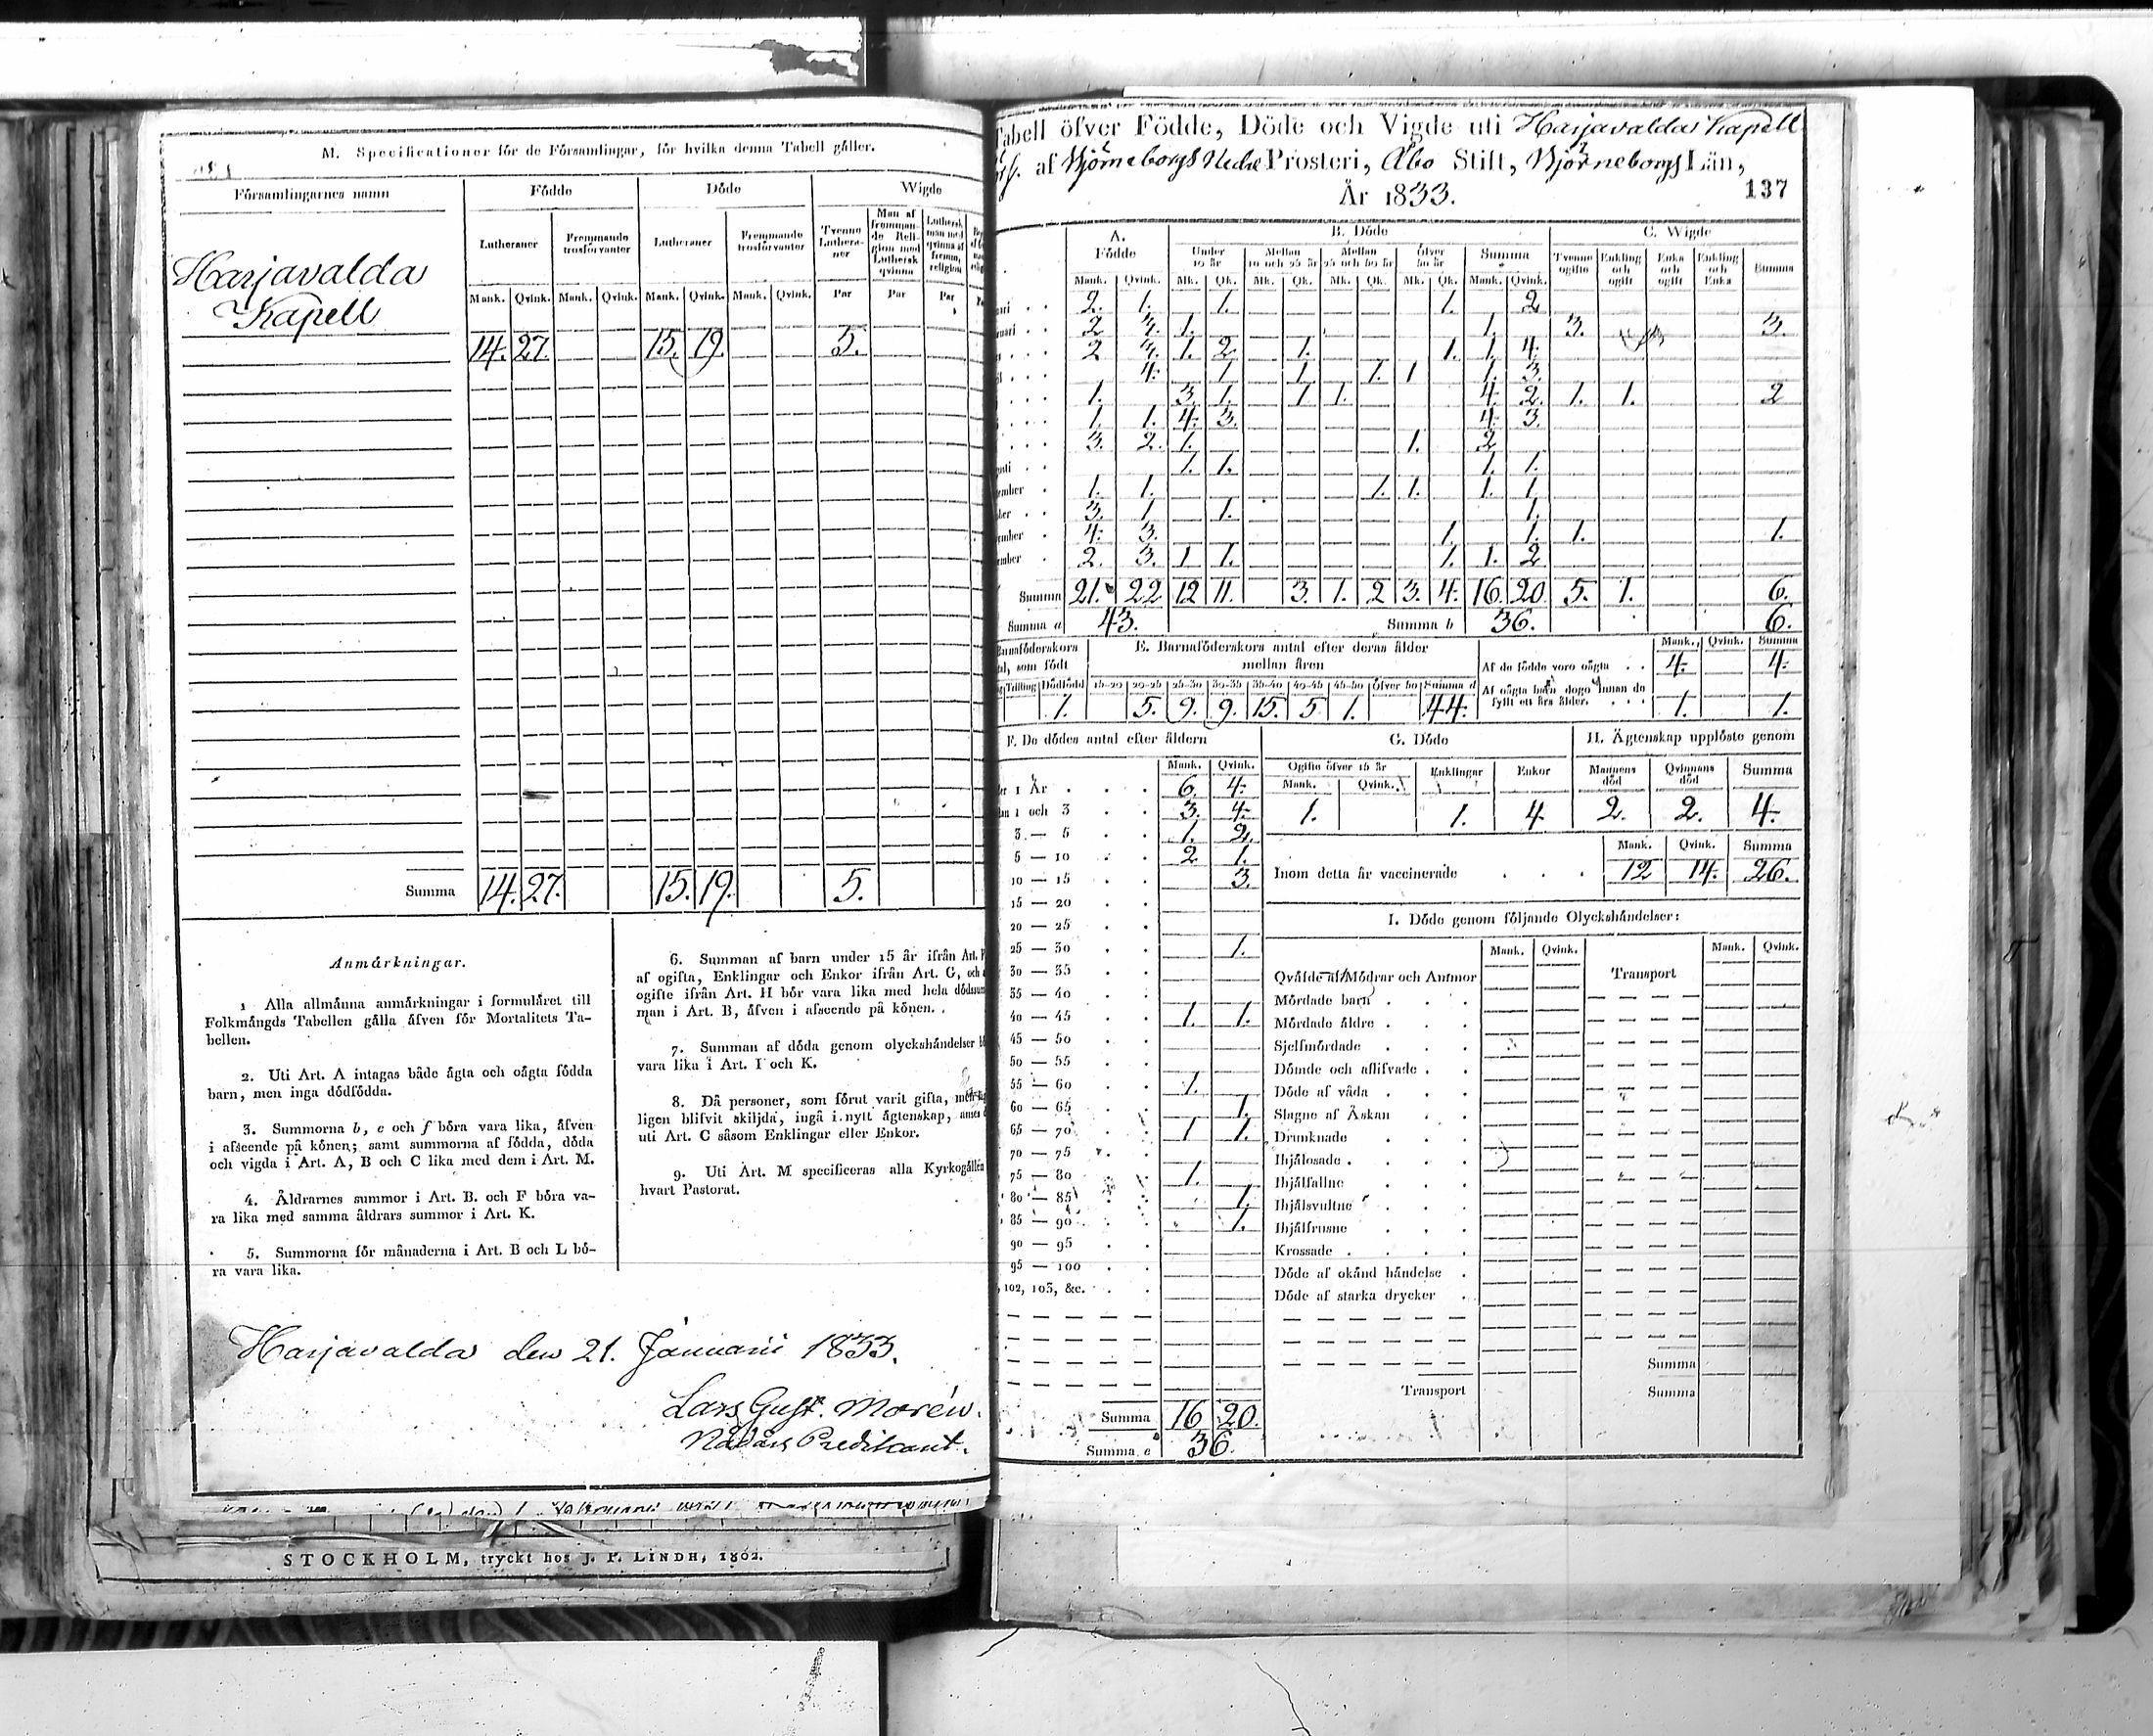 M. Specificationer för de Församlingar, för hvilka denna Tabell gäller.
Församlingarnes namn
Födde
Döde
Wigde
Lutheraner
Fremmande trosförvanter
Lutheraner
Fremmande trosförvanter
Tvenne Lutheraner
Man af fremmande Religion med Luthersk qvinna
Luthersk man med qvinna af fremm. religion
Mank. Qvink. Mank. Qvink. Mank. Qvink. Mank. Qvink. Par Par Par
Harjavalda
Kapell
14. 27. 15. 19. 5.
Summa 14. 27. 15. 19. 5.
Anmärkningar.
1 Alla allmänna anmärkningar i formuläret till
Folkmängds Tabellen gälla äfven för Mortalitets Ta-
bellen.
2. Uti Art. A intagas både ägta och oägta födda
barn, men inga dödfödda.
3. Summorna b, e och f böra vara lika, äfven
i afseende på könen; samt summorna af födda, döda
och vigda i Art. A, B och C lika med dem i Art. M.
4. Åldrarnes summor i Art. B. och F böra va-
ra lika med samma åldrars summor i Art. K.
5. Summorna för månaderna i Art. B och L bö-
ra vara lika.
6. Summan af barn under 15 år ifrån Art.
af ogifta, Enklingar och Enkor ifrån Art. G, och
ogifte ifrån Art. H bör vara lika med hela
man i Art. B, äfven i afseende på könen.
7. Summan af döda genom olyckshändelser
vara lika i Art. I och K.
8. Då personer, som förut varit gifta,
ligen blifvit skiljda, ingå i nytt ägtenskap,
uti Art. C såsom Enklingar eller Enkor.
9. Uti Art. M specificeras alla Kyrkogällen
hvart Pastorat.
Harjavalda den 21. Januarii 1833.
Lars Gust. Morén.
Nådårs Predikant.
STOCKHOLM, tryckt hos J. P. LINDH, 1802.
Tabell öfver Födde, Döde och Vigde uti Harjavalda Kapell
af Björneborgs Nedre Prosteri, Åbo Stift, Björneborgs Län,
År 1833.
137
A. Födde
B. Döde
C. Wigde
Under 10 år
Mellan 10 och 25 år
Mellan 25 och 50 år
öfver 50 år
Summa
Tvenne ogifte
Enkling och ogift
Enka och ogift
Enkling och Enka
Summa
Mank. Qvink. Mk. Qk. Mk. Qk. Mk. Qk. Mk. Qk. Mank. Qvink.
2. 1. 1. 1. 2
2 1. 1. 3. 3.
2 1. 2 1. 1. 1. 4.
4. 1. 1. 1. 1 1. 3.
1. 3. 1. 1 1. 4. 2. 1. 1. 2
1. 1. 4. 3. 4. 3.
3. 2. 1. 1. 2
1. 1. 1. 1.
1. 1. 1. 1. 1. 1.
3. 1 1. 1.
4. 3. 1. 1. 1. 1.
2. 3. 1 1. 1. 1. 2
Summa 21. 22 12 11. 3. 1. 2 3. 4. 16. 20. 5. 1. 6.
Summa a 43. Summa b 36. 6.
E. Barnaföderskors antal efter deras ålder
mellan åren
Trilling Dödfödd 15-20 20-25 25-30 30-35 35-40 40-45 45-50 öfver 50 Summa d
1. 5. 9. 9. 15. 5 1. 44.
Mank. Qvink. Summa
Af de födde voro oägta . . 4. 4.
Af oägta barn dogo innan de
fyllt ett års ålder. . . . 1. 1.
F. De dödes antal efter åldern
Mank. Qvink.
1 År 6. 4.
1 och 3 3. 4.
3 — 5 1. 2.
5 — 10 2 1.
10 — 15 3.
15 — 20
20 — 25
25 — 30 1.
30 — 35
35 — 40
40 — 45 1. 1.
45 — 50
50 — 55
55 — 60 1.
60 — 65 1.
65 — 70 1 1.
70 — 75
75 — 80 1.
80 — 85 1.
85 — 90 1.
90 — 95
95 — 100
102, 103, &c.
Summa 16 20.
Summa e 36.
G. Döde
Ogifte öfver 15 år
Enklingar
Enkor
Mank. Qvink.
1. 1. 4
H. Ägtenskap upplöste genom
Mannens död
Qvinnans död
Summa
2. 2. 4.
Mank. Qvink. Summa
Inom detta år vaccinerade . . . 12 14. 26.
I. Döde genom följande Olyckshändelser:
Mank. Qvink. Mank. Qvink.
Qväfde af Mödrar och Ammor
Transport
Mördade barn
Mördade äldre
Sjelfmördade
Dömde och aflifvade
Döde af våda
Slagne af Åskan
Drunknade
Ihjälosade
Ihjälfallne
Ihjälsvultne
Ihjälfrusne
Krossade
Döde af okänd händelse
Döde af starka drycker
Summa
Transport
Summa